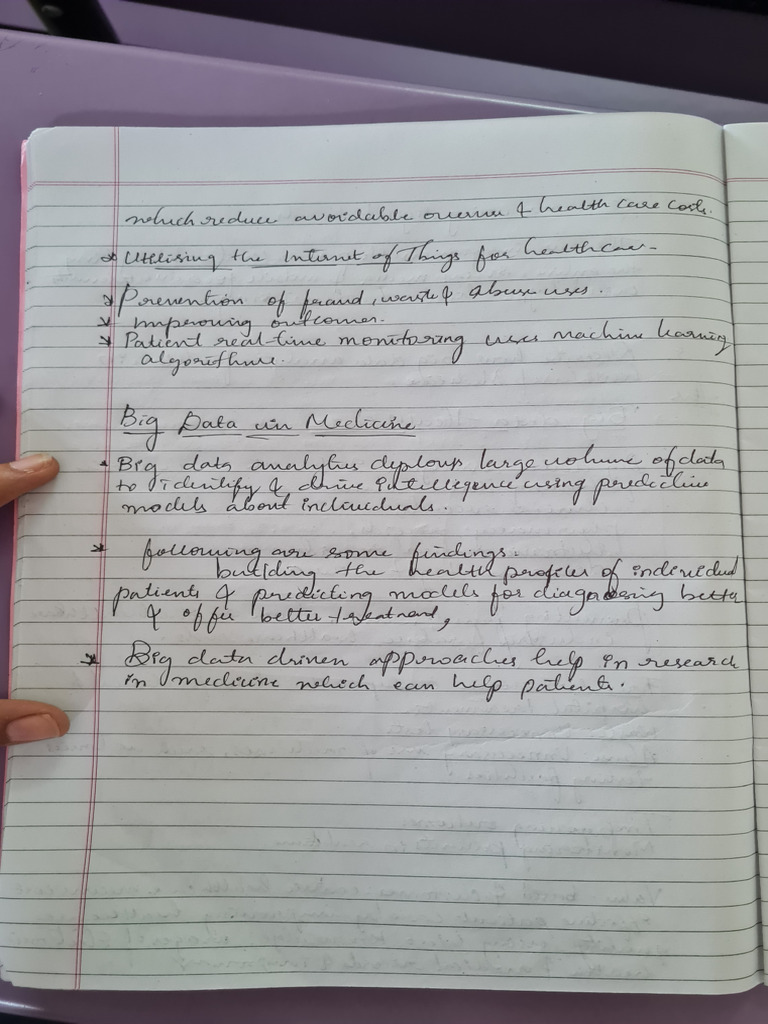 which reduce avoidable overuse & health care costs.
* Utilising the Internet of Things for healthcare.
* Prevention of fraud, waste & abuse uses.
* improving outcomes.
* Patient real-time monitoring uses machine learning
algorithms.
Big Data in Medicine
• Big data analytics deploys large volume of data
to identify & drive intelligence using predictive
models about individuals.
* following are some findings.
building the health profiles of individual
patients & predicting models for diagnosing better
& offer better treatment,
* Big data driven approaches help in research
in medicine which can help patients.